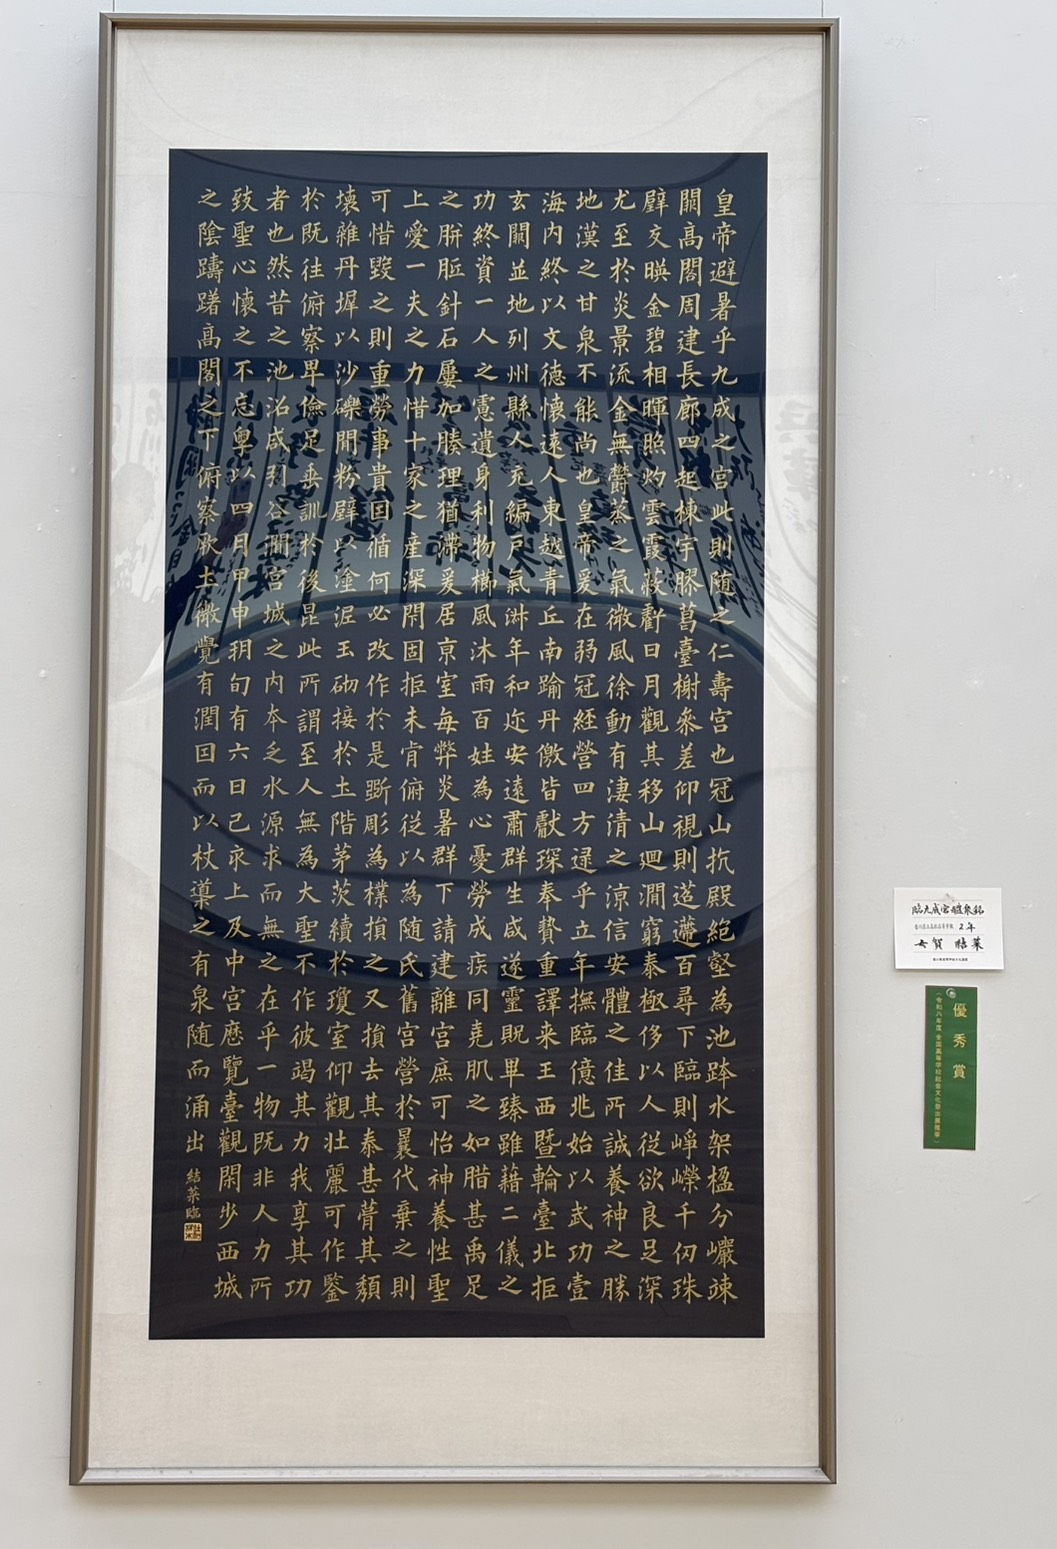 皇帝避暑乎九成之宮此則随之仁壽宮也冠山抗殿絶壑為池跨水架楹分巖竦
闕高閣周建長廊四起棟宇膠葛臺榭參差仰視則迢遰百尋下臨則崢嶸千仞珠
壁交暎金碧相暉照灼雲霞蔽虧日月觀其移山廻澗窮泰極侈以人從欲良足深
尤至於炎景流金無鬱蒸之氣微風徐動有淒清之涼信安體之佳所誠養神之勝
地漢之甘泉不能尚也皇帝爰在弱冠経營四方逯乎立年撫臨億兆始以武功壹
海内終以文德懷遠人東越青丘南踰丹儌皆獻琛奉贄重譯来王西暨輪臺北拒
玄闕並地列州縣人充編戸氣淋年和迩安遠肅群生咸遂靈貺畢臻雖藉二儀之
功終資一人之慮遺身利物櫛風沐雨百姓為心憂勞成疾同堯肌之如腊甚禹足
之胼胝針石屢加腠理猶滯爰居京室每弊炎暑群下請建離宮庶可怡神養性聖
上愛一夫之力惜十家之産深閑固拒未肯俯従以為随氏舊宮營於曩代棄之則
可惜毀之則重勞事貴因循何必改作於是斲彫為樸損之又損去其泰甚葺其頽
壊雜丹墀以沙礫間粉壁以塗泥玉砌接於土階茅茨續於瓊室仰觀壮麗可作鑒
於既往俯察卑儉足垂訓於後昆此所謂至人無為大聖不作彼竭其力我享其功
者也然昔之池沼咸引谷澗宮城之内本乏水源求而無之在乎一物既非人力所
致聖心懷之不忘粤以四月甲申朔旬有六日己亥上及中宮歴覽臺觀閑步西城
之陰躊躇高閣之下俯察厥土微覺有潤因而以杖導之有泉随而涌出 結菜臨
臨九成宮醴泉銘
2年
結菜
優秀賞
令和八年度 全国高等学校総合文化祭出展推薦